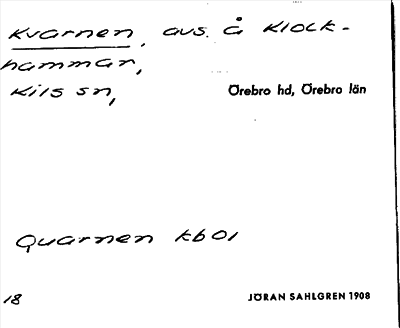 Kvarnen, avs. å Klock-
hammar,
Kils sn,
Örebro hd, Örebro län
Quarnen kb 01
18
JÖRAN SAHLGREN 1908